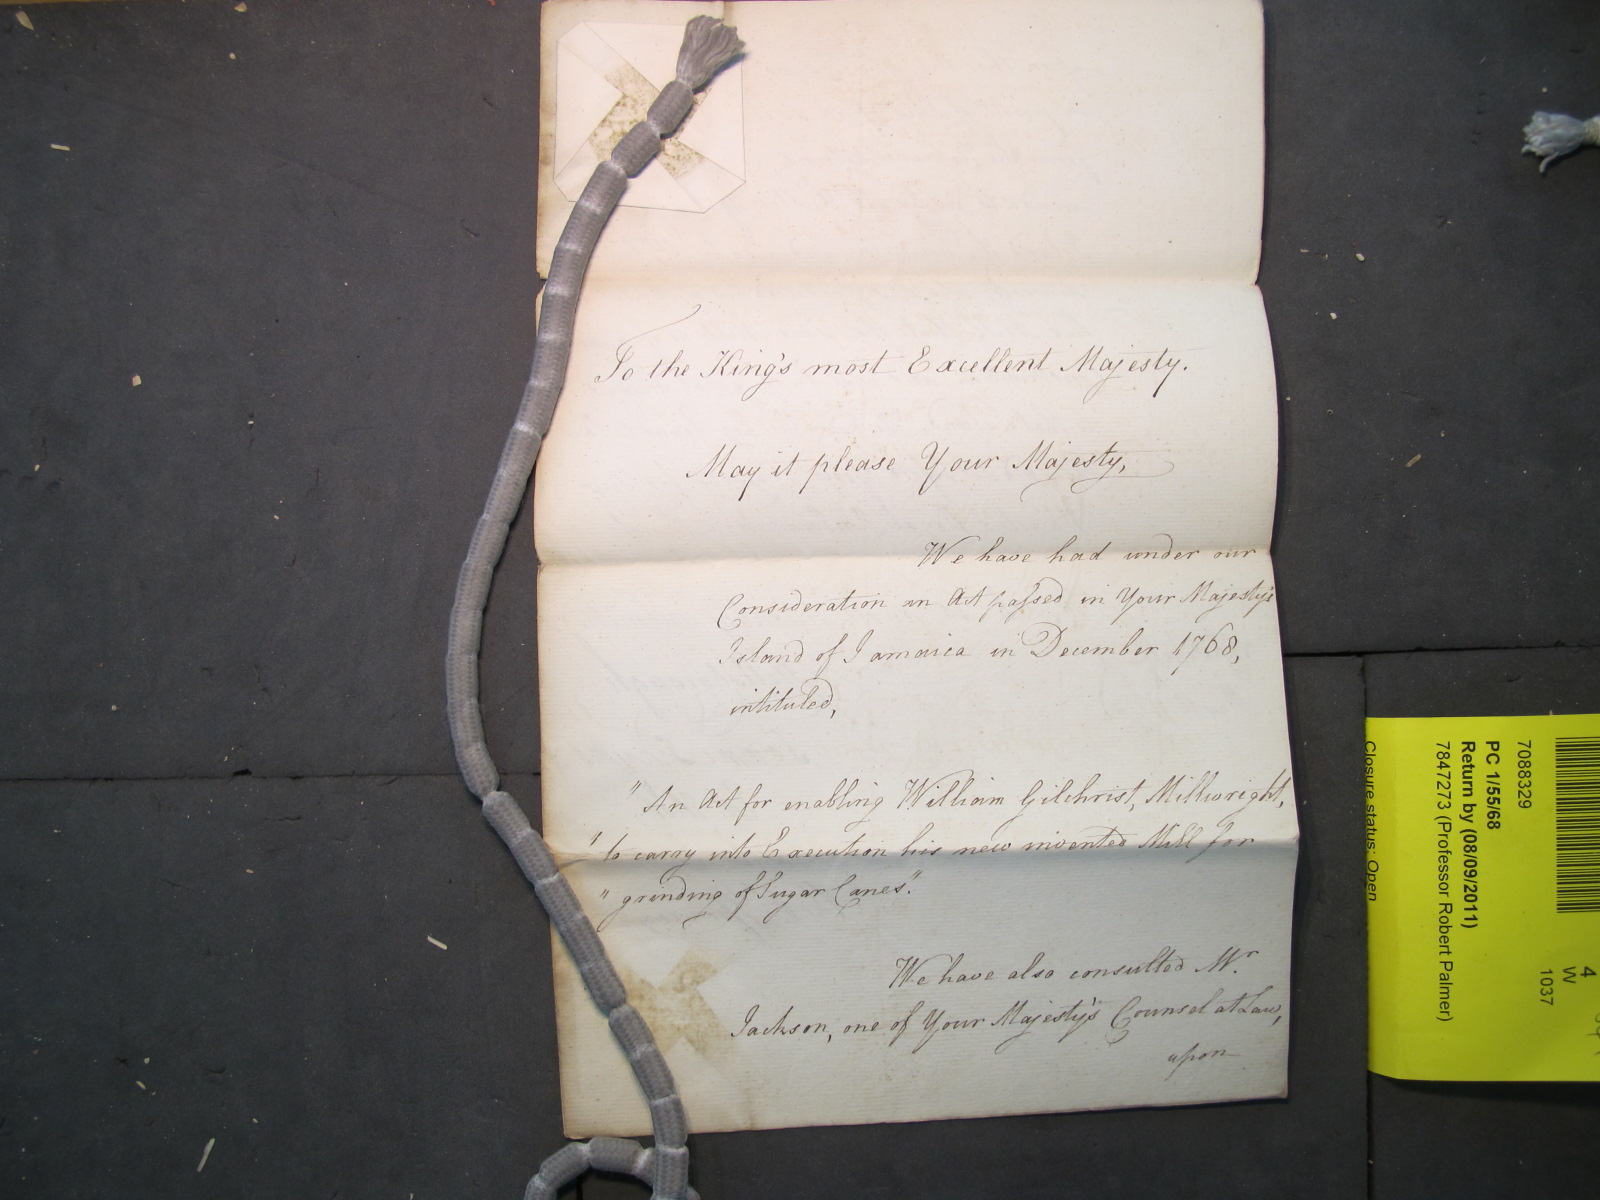 To the King's most Excellent Majesty.
May it please Your Majesty,
We have had under our
Consideration an Act passed in Your Majesty's
Island of Jamaica in December 1768,
intituled,
" An Act for enabling William Gilchrist, Millwright,
" to carry into Execution his new invented Mill for
" grinding of Sugar Canes".
We have also consulted Mr.
Jackson, one of Your Majesty's Counsel at Law,
upon
7088329
PC 1/55/68
Return by (08/09/2011)
7847273 (Professor Robert Palmer)
Closure status: Open
4
W
1037